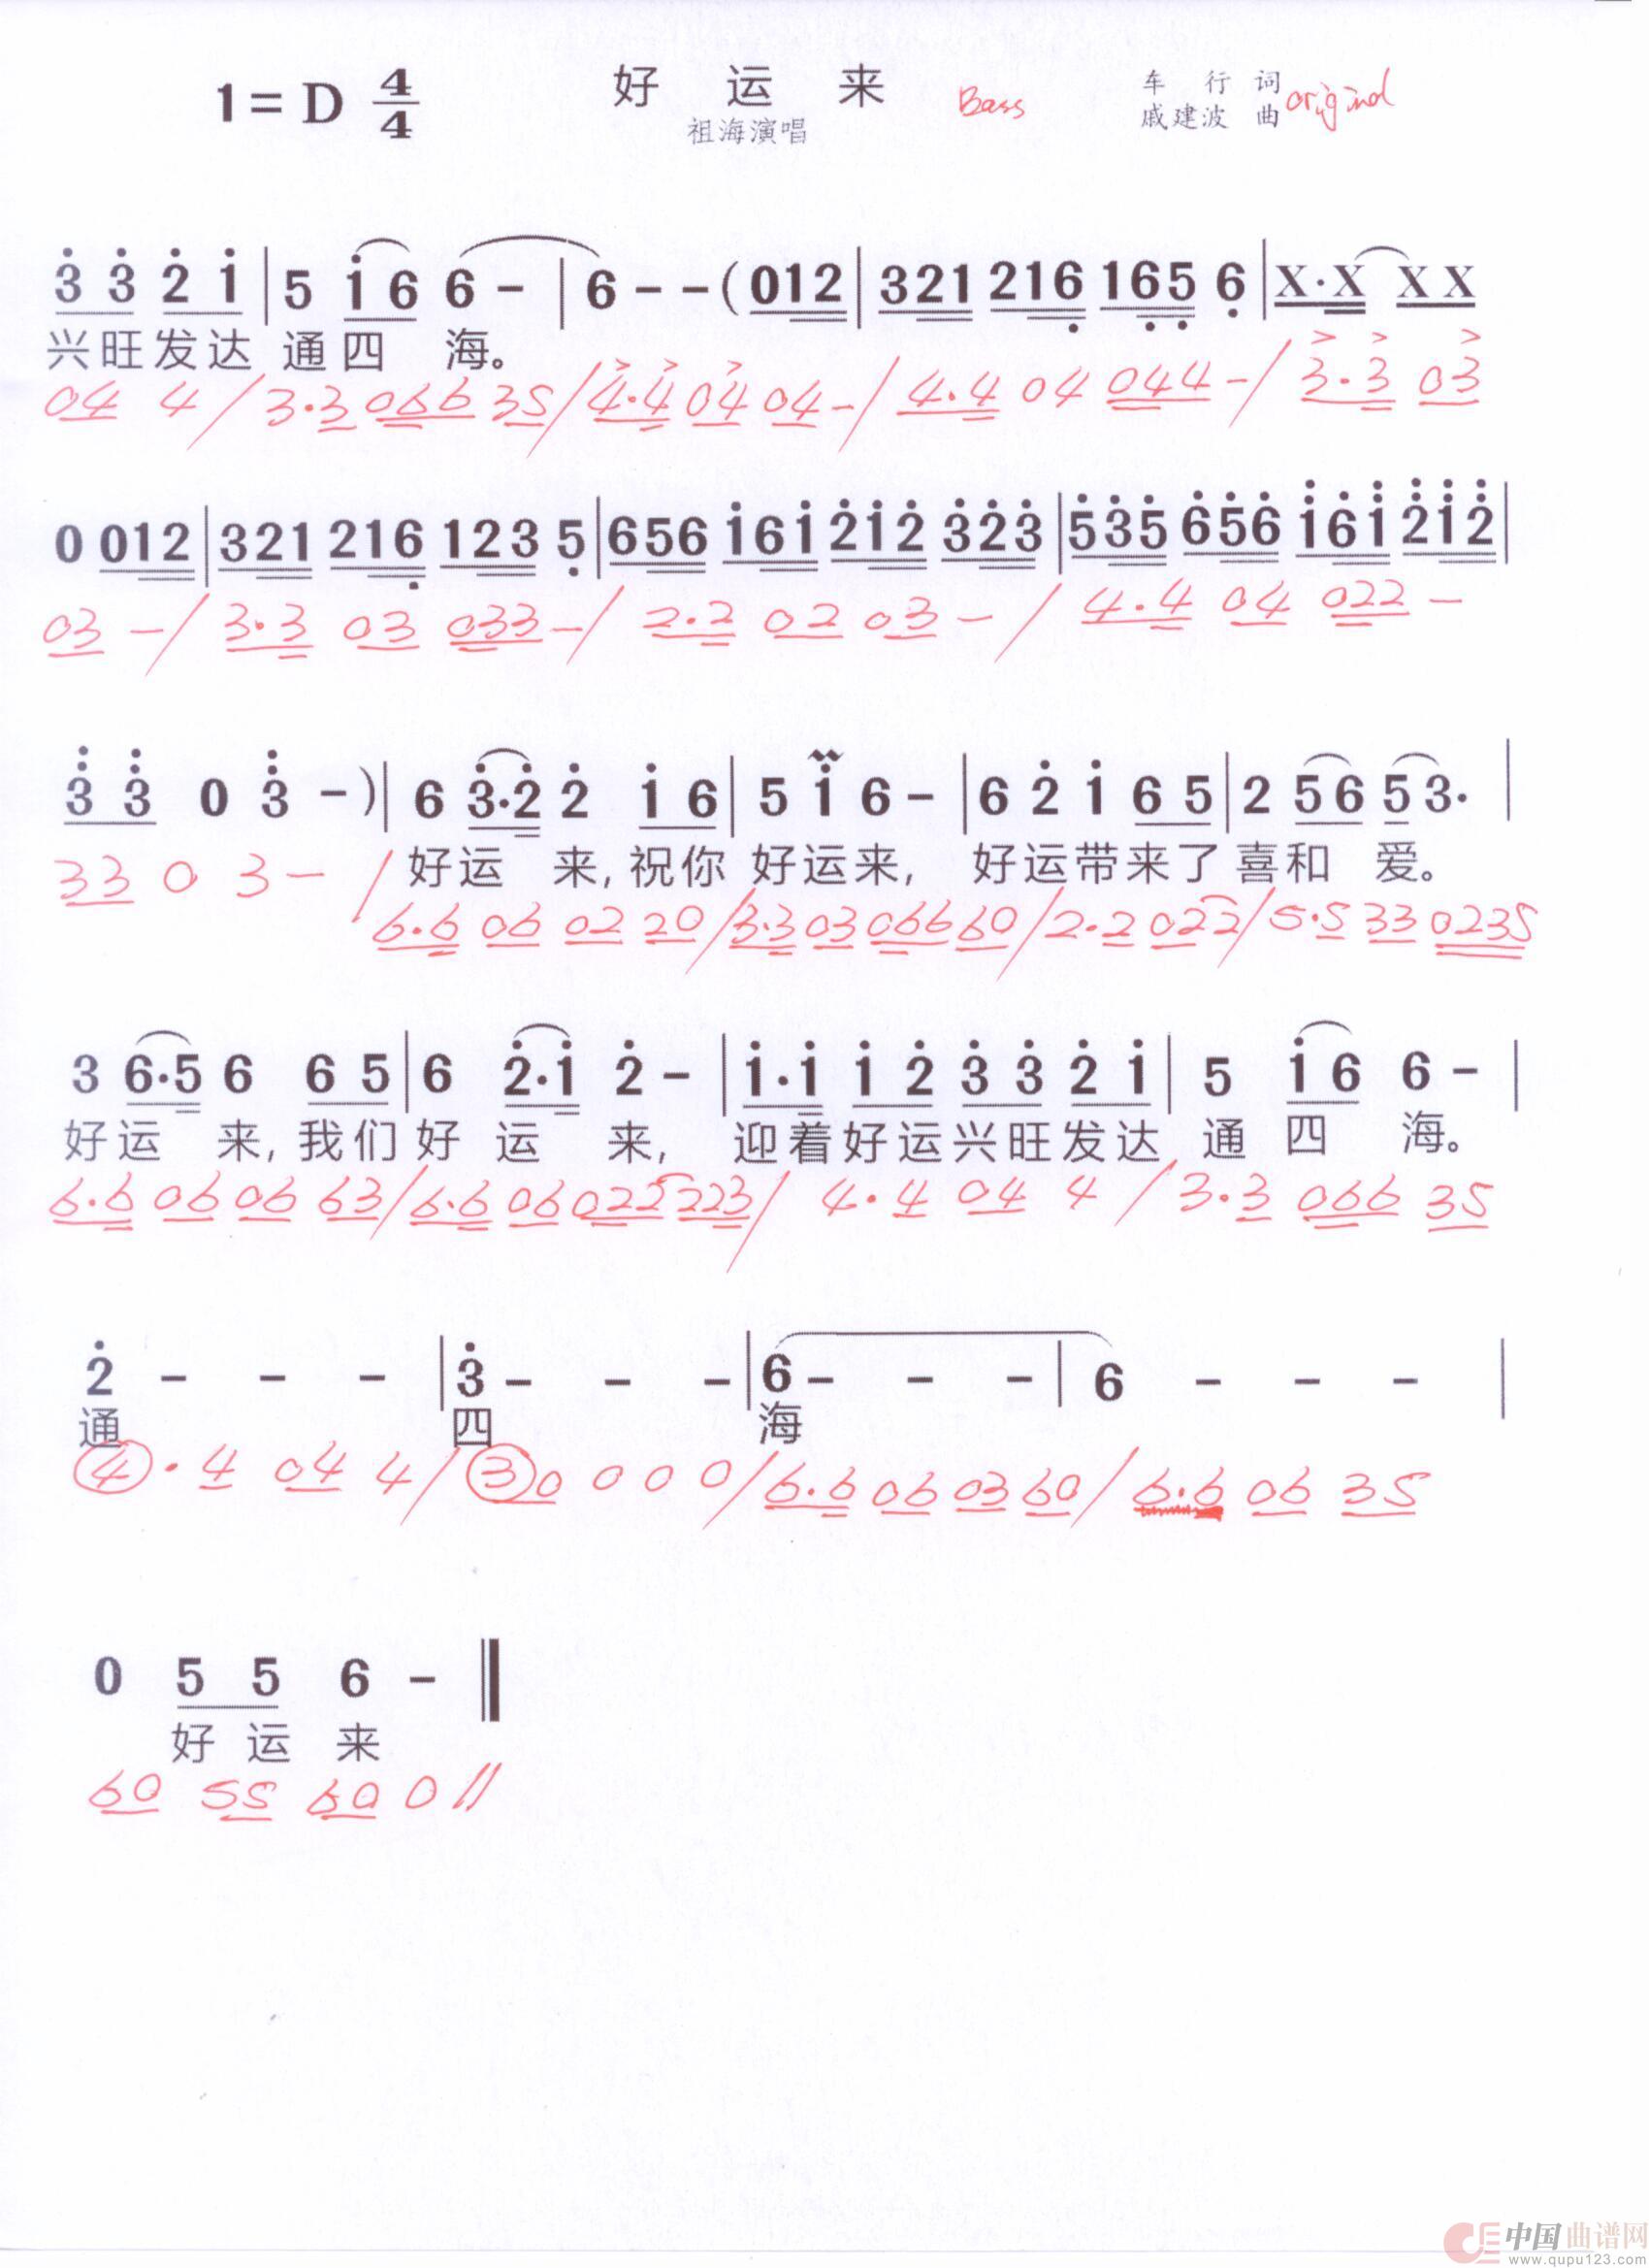 1=D 4/4 好 运 来 Bass 车 行 词
祖海演唱 戚建波 曲 original
3 3 2 1 | 5 1 6 6 - | 6 - - ( 0 1 2 | 3 2 1 2 1 6 1 6 5 6 | X·X X X
兴旺发达 通四 海。
04 4 / 3·3 066 35 / 4·4 04 04 - / 4·4 04 044 - / 3·3 03
0 0 1 2 | 3 2 1 2 1 6 1 2 3 5 | 6 5 6 1 6 1 2 1 2 3 2 3 | 5 3 5 6 5 6 1 6 1 2 1 2 |
03 - / 3·3 03 033 - / 2·2 02 03 - / 4·4 04 022 -
3 3 0 3 - ) | 6 3·2 2 1 6 | 5 1 6 - | 6 2 1 6 5 | 2 5 6 5 3· |
好运 来,祝你 好运来, 好运带来了喜和 爱。
33 0 3 - / 6·6 06 02 20 / 3·3 03 066 60 / 2·2 022 / 5·5 33 0235
3 6·5 6 6 5 | 6 2·1 2 - | 1·1 1 2 3 3 2 1 | 5 1 6 6 - |
好运 来,我们好 运 来, 迎着好运兴旺发达 通 四 海。
6·6 06 06 63 / 6·6 06 022 223 / 4·4 04 4 / 3·3 066 35
2 - - - | 3 - - - | 6 - - - | 6 - - - |
通 四 海
④·4 04 4 / ③0 0 0 0 / 6·6 06 03 60 / 6·6 06 35
0 5 5 6 - ‖
好 运 来
60 55 60 0 //
中国曲谱网
www.qupu123.com